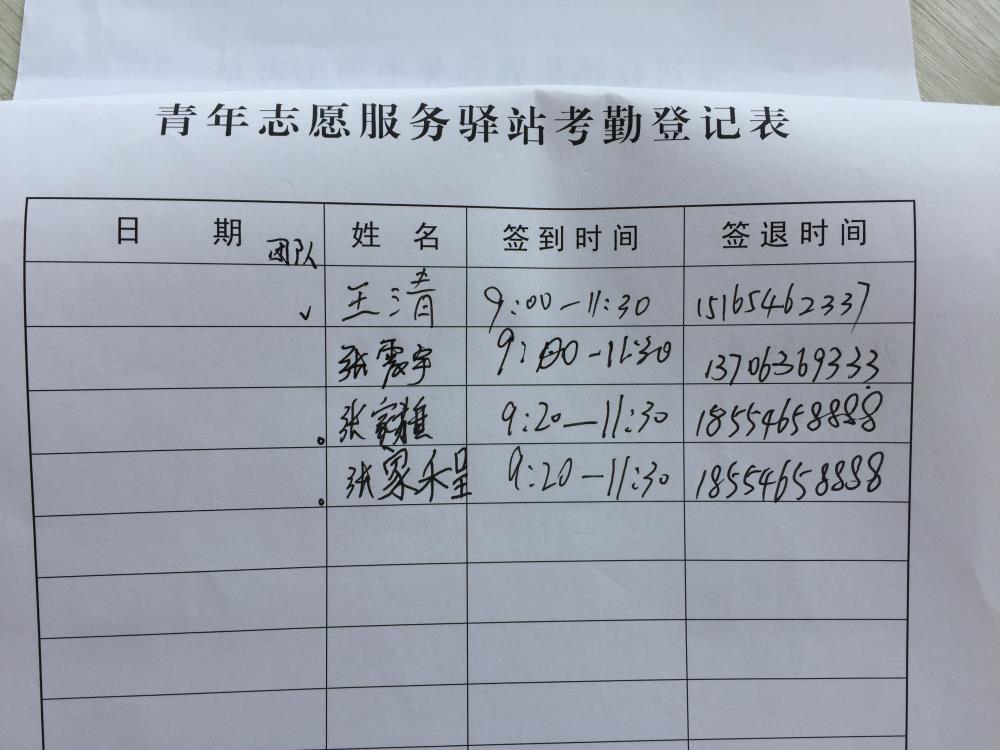 青年志愿服务驿站考勤登记表
日期 团队 姓名 签到时间 签退时间
✓ 王清 9:00-11:30 15165462337
张震宇 9:00-11:30 13706369333
张 9:20-11:30 18554658888
张家程 9:20-11:30 18554658888